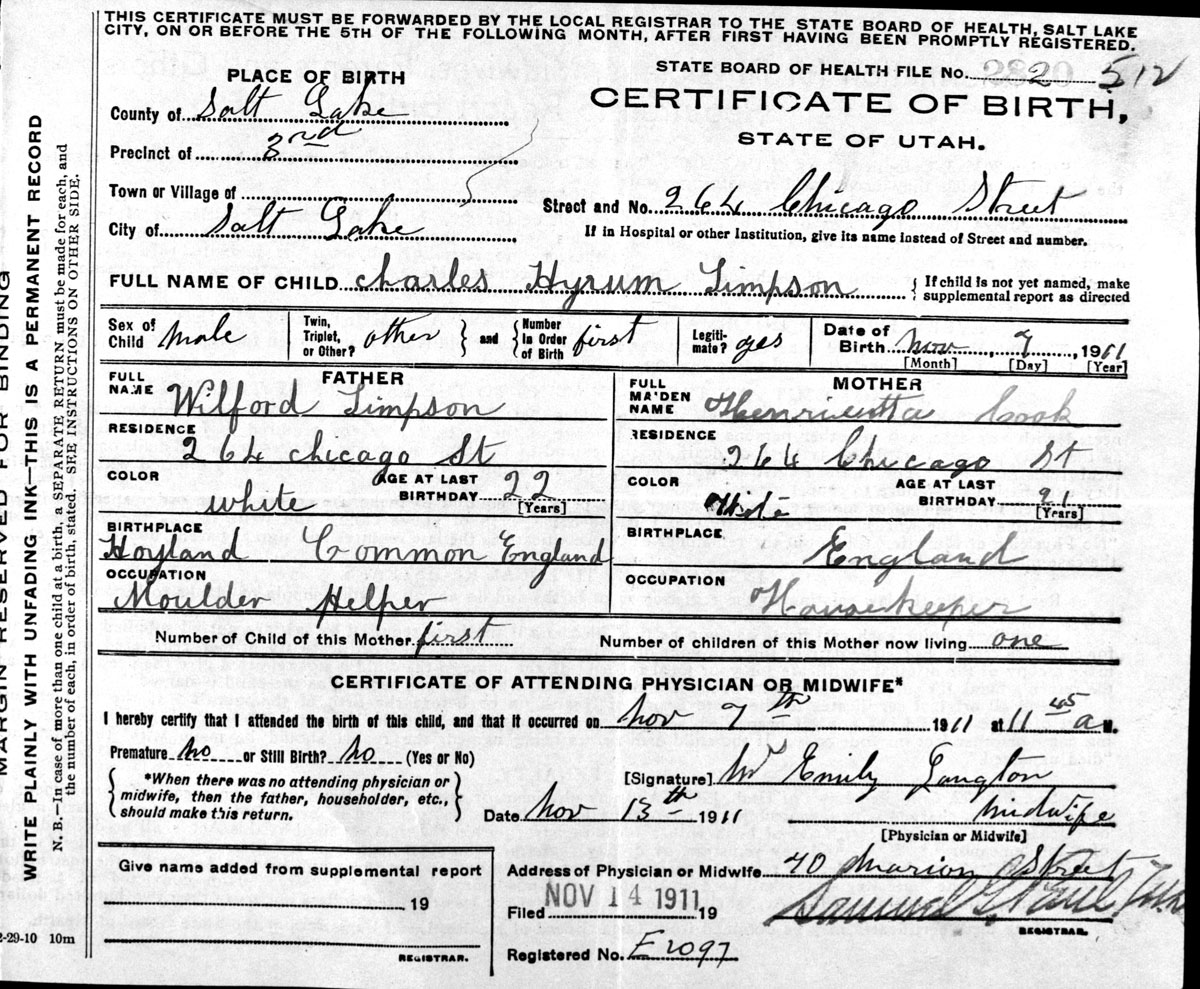 THIS CERTIFICATE MUST BE FORWARDED BY THE LOCAL REGISTRAR TO THE STATE BOARD OF HEALTH, SALT LAKE
CITY, ON OR BEFORE THE 5TH OF THE FOLLOWING MONTH, AFTER FIRST HAVING BEEN PROMPTLY REGISTERED.
MARGIN RESERVED FOR BINDING
WRITE PLAINLY WITH UNFADING INK—THIS IS A PERMANENT RECORD
N. B.—In case of more than one child at a birth, a SEPARATE RETURN must be made for each, and
the number of each, in order of birth, stated. SEE INSTRUCTIONS ON OTHER SIDE.
PLACE OF BIRTH
County of Salt Lake
Precinct of 3rd
Town or Village of
City of Salt Lake
STATE BOARD OF HEALTH FILE No. 2 512
CERTIFICATE OF BIRTH,
STATE OF UTAH.
Street and No. 264 Chicago Street
If in Hospital or other Institution, give its name instead of Street and number.
FULL NAME OF CHILD Charles Hyrum Simpson { If child is not yet named, make
supplemental report as directed
Sex of Child male Twin, Triplet, or Other? other } and { Number In Order of Birth first Legiti-mate? yes Date of Birth Nov, 7, 1911
[Month] [Day] [Year]
FATHER
FULL NAME Wilford Simpson
RESIDENCE 264 chicago St
COLOR white AGE AT LAST BIRTHDAY 22 [Years]
BIRTHPLACE Hoyland Common England
OCCUPATION Moulder Helper
MOTHER
FULL MAIDEN NAME Henrieutta Cook
RESIDENCE 264 Chicago St
COLOR White AGE AT LAST BIRTHDAY 21 [Years]
BIRTHPLACE England
OCCUPATION Housekeeper
Number of Child of this Mother first Number of children of this Mother now living one
CERTIFICATE OF ATTENDING PHYSICIAN OR MIDWIFE*
I hereby certify that I attended the birth of this child, and that it occurred on Nov 7th 1911 at 11 45 a M.
Premature No or Still Birth? No (Yes or No)
{ *When there was no attending physician or
midwife, then the father, householder, etc.,
should make this return. }
[Signature] Emily Langton
Date Nov 13th 1911 Midwife
[Physician or Midwife]
Give name added from supplemental report
19
REGISTRAR.
Address of Physician or Midwife 40 Marion Street
Filed NOV 14 1911 19 Samuel G. Paul
REGISTRAR.
Registered No. E2097
2-29-10 10m